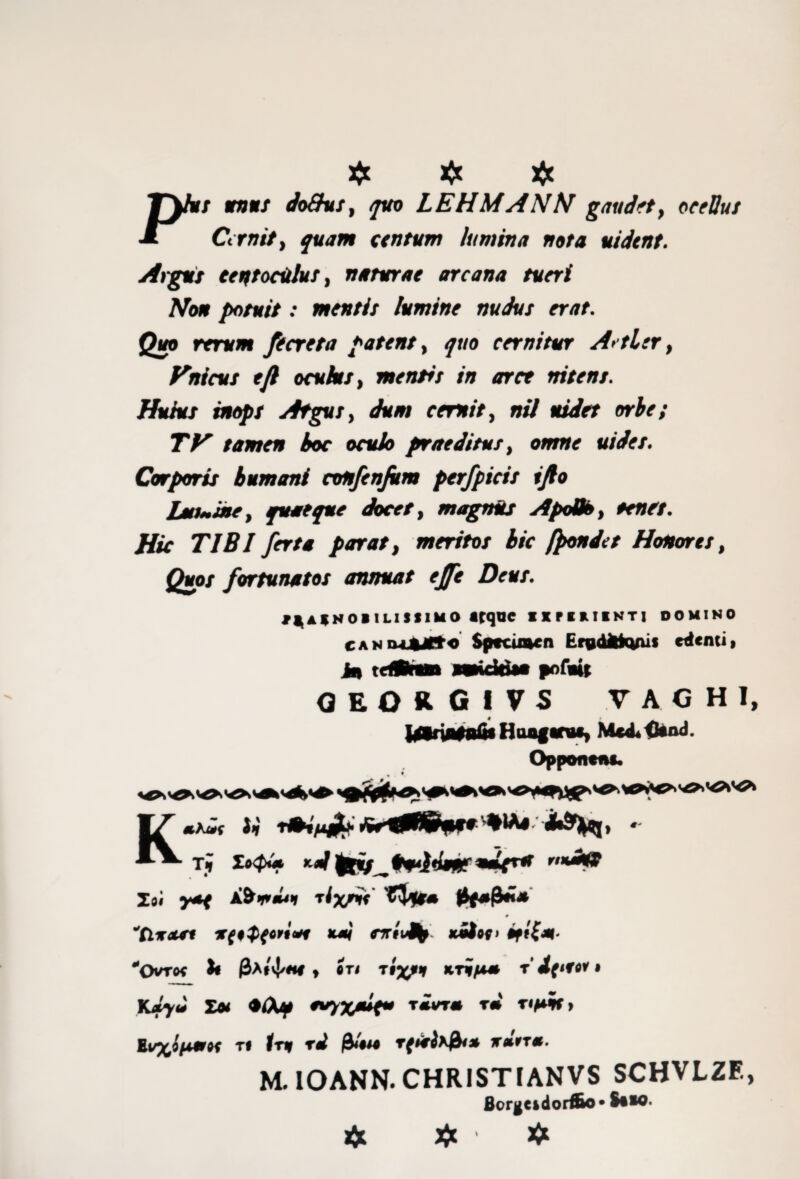 Plus unus doctus, quo LEHMANN gaudet, ocellus
Cernit, quam centum lumina nota uident.
Argus centoculus, naturae arcana tueri
Non potuit : mentis lumine nudus erat.
Quo rerum ſecreta patent, quo cernitur Aether,
Vnicus eſt oculus, mentis in arce nitens.
Huius inops Argus, dum cernit, nil uidet orbe;
TV tamen hoc oculo praeditus, omne uides.
Corporis humani conſenſum perſpicis iſto
Lumine, quaeque docet, magnus Apollo, tenes.
Hic TIBI ſerta parat, meritos hic ſpondet Honores,
Quos fortunatos annuat eſſe Deus.
PRAENOBILISSIMO atque EXPERIENTI DOMINO
CANDIDATO Specimen Eruditionis edenti,
in teſſeram amicitiae poſuit
GEORGIVS VAGHI,
Hungarus, Med. Cand.
Opponens.
Καλῶς δὴ
Τῇ Σοφίᾳ καὶ
Σοὶ γὰρ Ἀθηναίη τέχνης
Ὤπασε προφρονέως καὶ
Ὄντος δὲ βλέψης, ὅτι τέχνη κτῆμα τ' ἄριστον
Κἀγὼ Σοι Φίλῳ συγχαίρω ταῦτα τὰ τιμῆς,
Εὐχόμενος τε ἔτη τὰ βίου τρισόλβια πάντα.
M. IOANN. CHRISTIANVS SCHVLZE,
Borgesdorffio-Saxo.